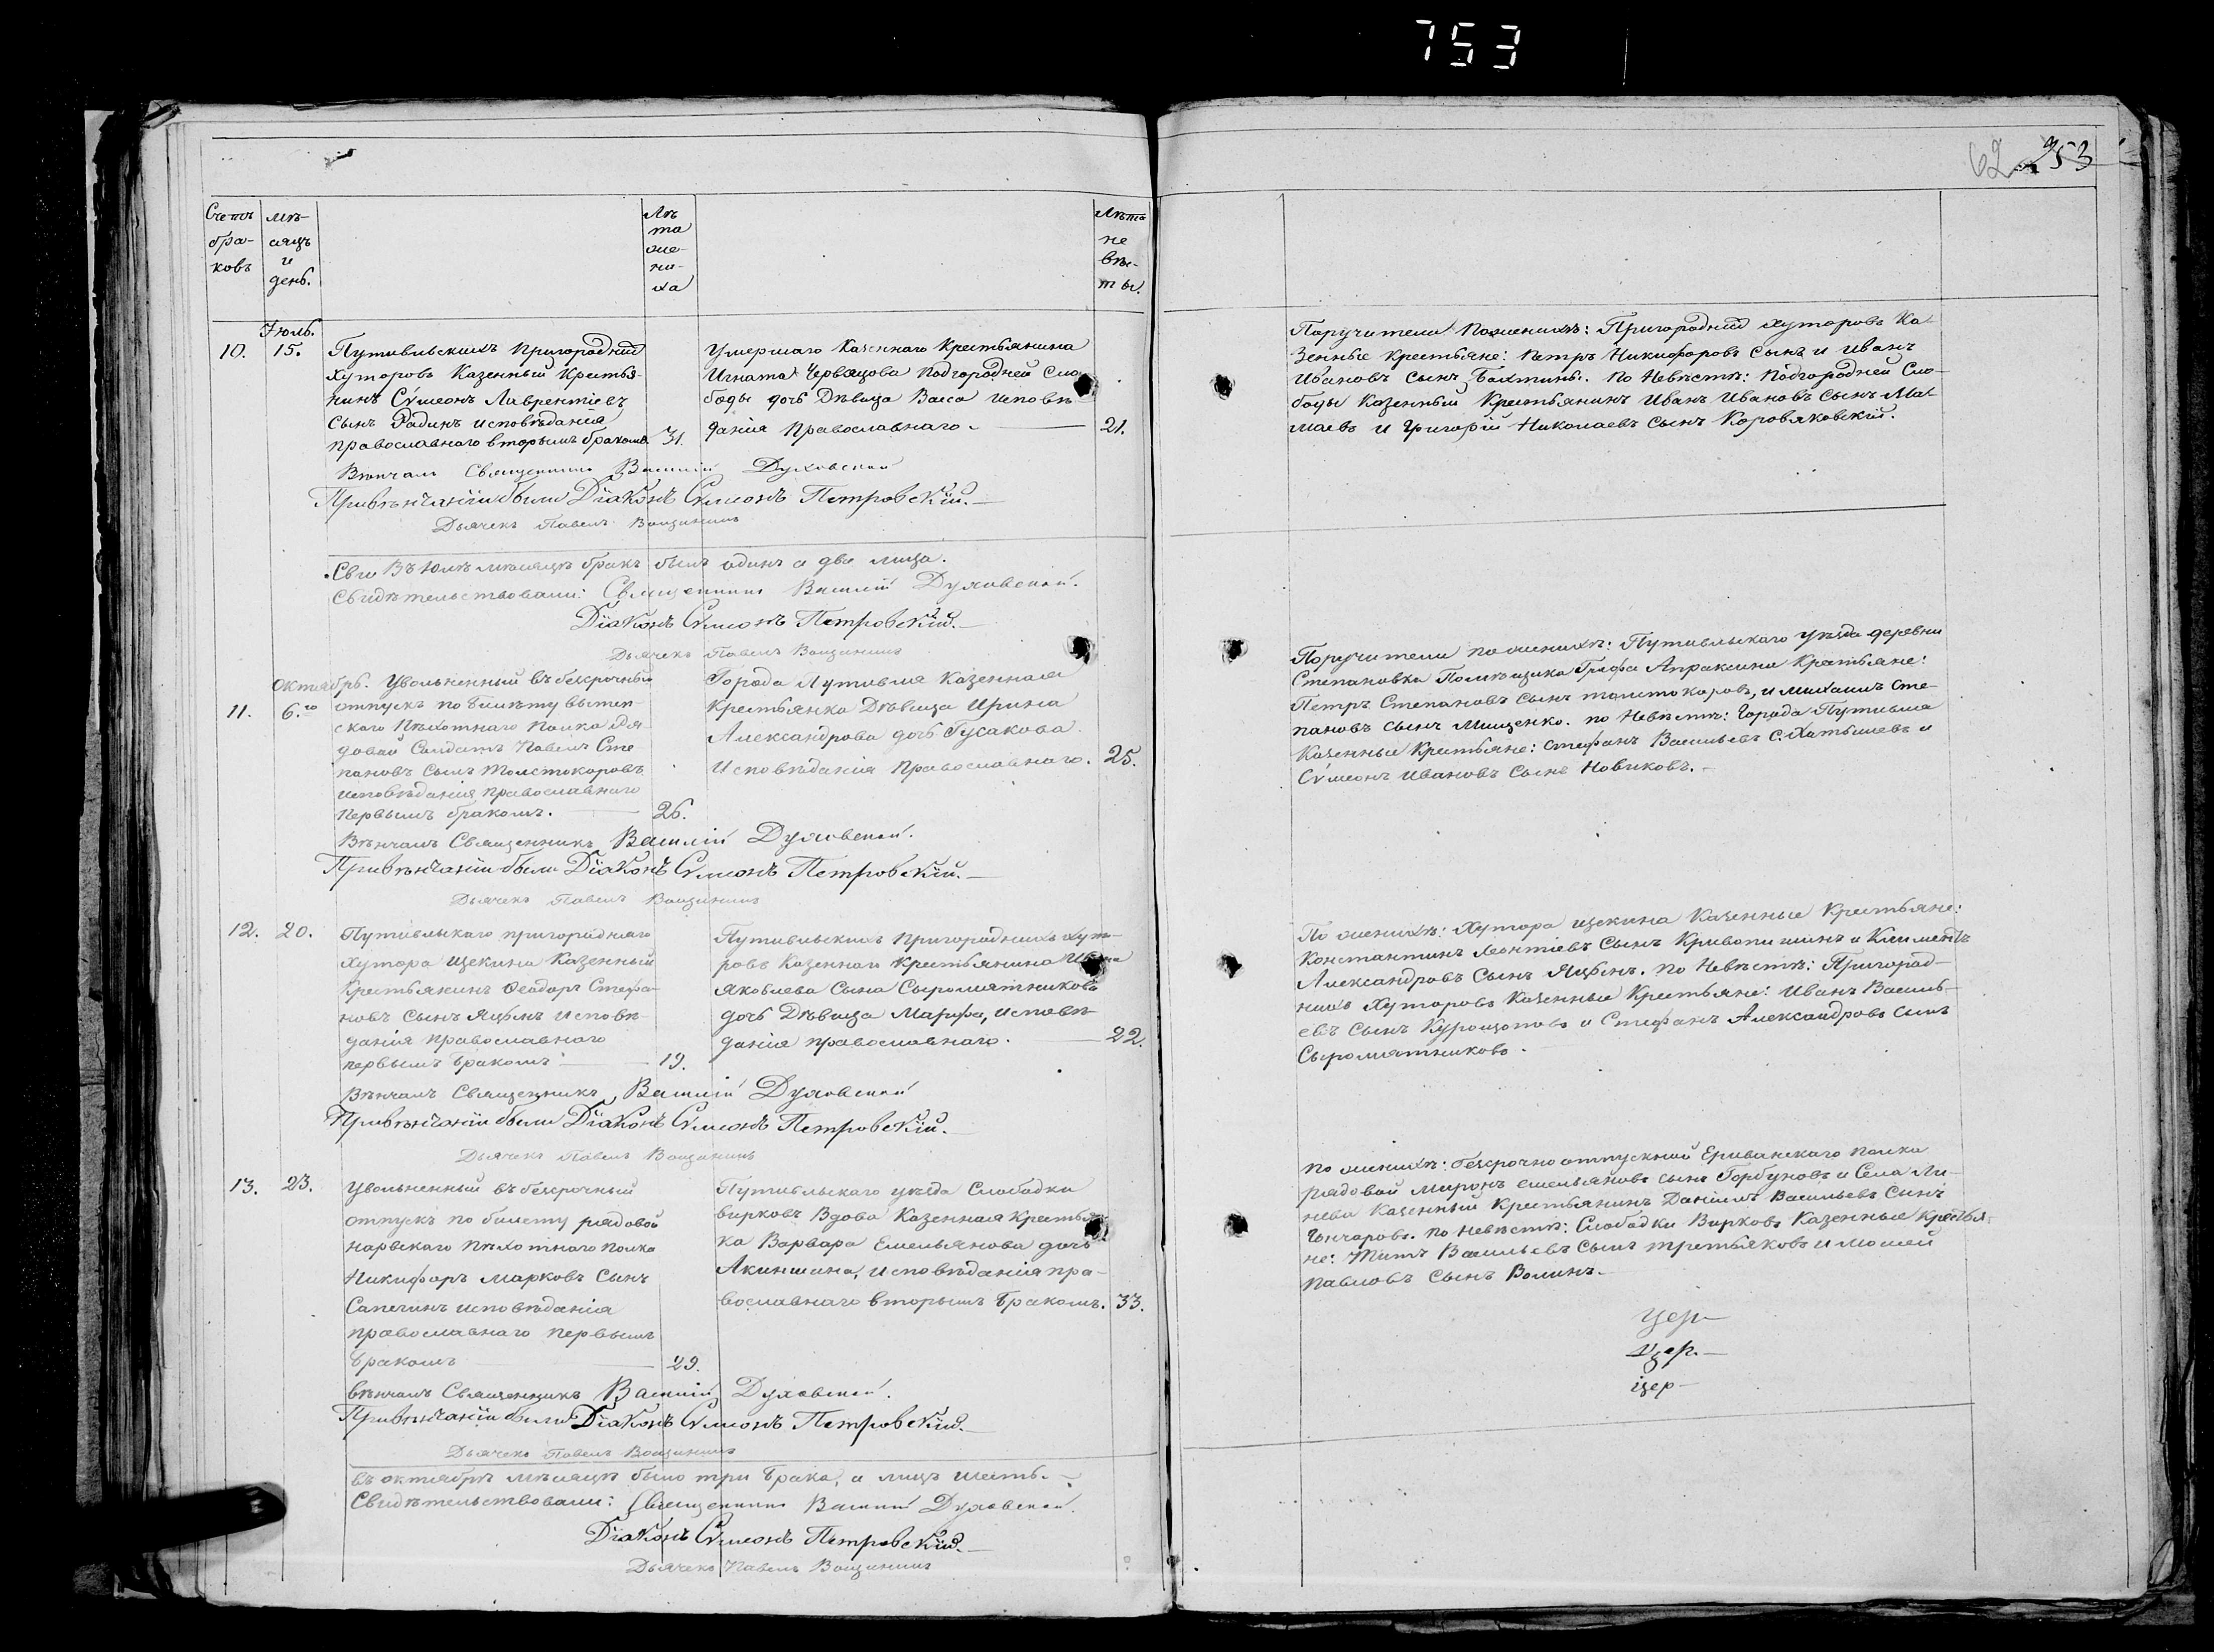 753
62 253
Счетъ бра- ковъ
Мѣ- сяцъ и день.
Лѣ та же- ни- ха
Лѣта не вѣс- ты.
Іюль.
10. 15.
Путивльскихъ пригородныхъ
хуторовъ Казенный Крестья-
нинъ Сѵмеонъ Лаврентіевъ
сынъ Радинъ исповѣданія
православнаго вторымъ бракомъ. 31.
Умершаго Казеннаго Крестьянина
Игната Червяцова Подгородней Сло-
боды дочь Дѣвица Васса исповѣ-
данія Православнаго. 21.
Вѣнчалъ Священникъ Василій Духовской
При вѣнчаніи были Діаконъ Сѵмеонъ Петровскій.
Дьячекъ Павелъ Вощининъ
Въ Юлѣ мѣсяцѣ бракъ былъ одинъ а два лица.
Свидѣтельствовали: Священникъ Василій Духовской.
Діаконъ Сѵмеонъ Петровскій.
Дьячекъ Павелъ Вощининъ
Октябрь.
11. 6.го
Увольненный въ безсрочный
отпускъ по билету
скаго Пѣхотнаго Полка Ря-
довой Солдатъ Павелъ Сте
пановъ сынъ Толстокоровъ
исповѣданія православнаго
первымъ бракомъ. 26.
Города Путивля Казенная
Крестьянка Дѣвица Ирина
Александрова дочь Гусакова.
Исповѣданія Православнаго. 25.
Вѣнчалъ Священникъ Василій Духовской.
При вѣнчаніи были Діаконъ Сѵмеонъ Петровскій.
Дьячекъ Павелъ Вощининъ
12. 20.
Путивльскаго пригороднаго
хутора Щекина Казенный
Крестьянинъ Ѳеодоръ Стефа-
новъ сынъ Яцынъ исповѣ-
данія православнаго
первымъ бракомъ 19.
Путивльскихъ Пригородныхъ хуто-
ровъ Казеннаго Крестьянина Ивана
Яковлева Сына Сыромятникова
дочь Дѣвица Марфа, исповѣ
данія православнаго. 22.
Вѣнчалъ Священникъ Василій Духовской
При вѣнчаніи были Діаконъ Сѵмеонъ Петровскій.
Дьячекъ Павелъ Вощининъ
13. 23.
Увольненный въ безсрочный
отпускъ по билету рядовой
нарвскаго пѣхотнаго полка
Никифоръ Марковъ Сынъ
Сапегинъ исповѣданія
православнаго первымъ
бракомъ 29.
Путивльскаго уѣзда Слободки
вирковъ Вдова Казенная Крестьян
ка Варвара Емельянова дочь
Акиншина, исповѣданія пра-
вославнаго вторымъ бракомъ. 33.
вѣнчалъ Священникъ Василій Духовской.
При вѣнчаніи были Діаконъ Сѵмеонъ Петровскій.
Дьячекъ Павелъ Вощининъ
Въ октябрѣ мѣсяцѣ было три брака, а лицъ шесть.
Свидѣтельствовали: Священникъ Василій Духовской.
Діаконъ Сѵмеонъ Петровскій.
Дьячекъ Павелъ Вощининъ
Поручители По женихѣ: Пригородныхъ хуторовъ Ка-
зенные крестьяне: Петръ Никифоровъ Сынъ и Иванъ
Ивановъ сынъ Бахтины. По Невѣстѣ: Подгородней Сло-
боды Казенный Крестьянинъ Иванъ Ивановъ Сынъ
и Григорій Николаевъ Сынъ Коровяковскій.
Поручители по женихѣ: Путивльскаго уѣзда деревни
Степановки Помѣщика Графа Апраксина Крестьяне:
Петръ Степановъ Сынъ толстокоровъ, и михаилъ Сте-
пановъ сынъ Мищенко. по Невѣстѣ: Города Путивля
Казенные Крестьяне: Стефанъ Васильевъ С. и
Сѵмеонъ Ивановъ Сынъ Новиковъ.
По женихѣ: Хутора щекина Казенные Крестьяне:
Константинъ Леонтіевъ Сынъ Кривопишинъ и Климентъ
Александровъ Сынъ Яцынъ. По Невѣстѣ: Пригород-
ныхъ Хуторовъ Казенные Крестьяне: Иванъ Василь-
евъ Сынъ и Стефанъ Александровъ сынъ
Сыромятниковъ.
По женихѣ: безсрочно отпускной Ериванскаго полка
рядовой Миронъ Емельяновъ сынъ Горбуновъ и Села Ли-
нева Казенный Крестьянинъ Даніилъ Васильевъ Сынъ
Гончаровъ. По Невѣстѣ: Слободки Вирковъ Казенные Крестья-
не: Титъ Васильевъ Сынъ третьяковъ и Моисей
Павловъ Сынъ Волинъ.